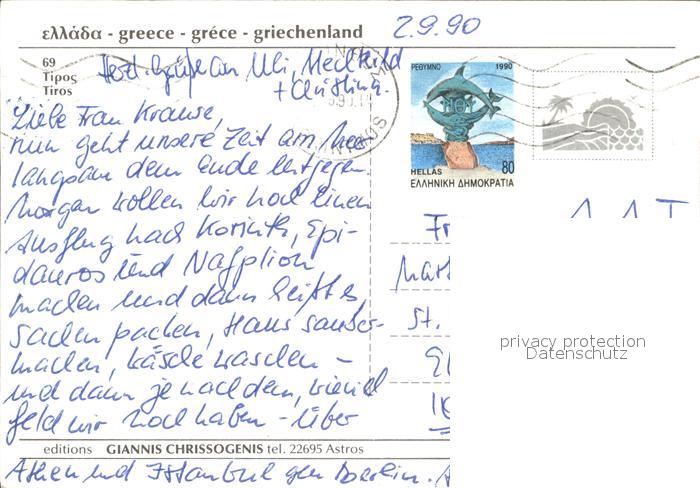 ελλάδα - greece - gréce - griechenland
2.9.90
69
Τίρος
Tiros
Herzl. Grüße an Uli, Mechthild
+ Christina.
Liebe Frau Krause,
nun geht unsere Zeit am Meer
langsam dem Ende entgegen.
Morgen wollen wir noch einen
Ausflug nach Korinth, Epi-
dauros und Nafplion
machen und dann heißt es,
Sachen packen, Haus sauber-
machen, Wäsche waschen -
und dann je nachdem, wieviel
Geld wir noch haben - über
editions GIANNIS CHRISSOGENIS tel. 22695 Astros
Athen und Istanbul gen Berlin.
ΡΕΘΥΜΝΟ 1990
HELLAS 80
ΕΛΛΗΝΙΚΗ ΔΗΜΟΚΡΑΤΙΑ
Fr
St.
privacy protection
Datenschutz